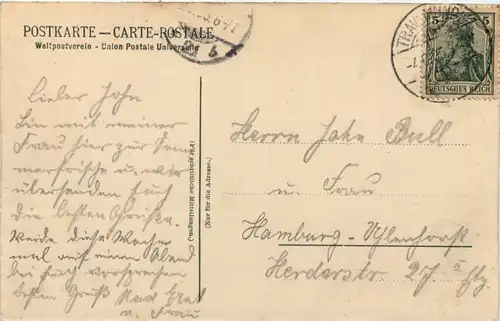 POSTKARTE — CARTE-POSTALE
Weltpostverein - Union Postale Universelle
5 5
DEUTSCHES REICH
Lieber John
bin mit meiner
Frau hier zur Som
merfrische u. wir
übersenden Euch
die besten Grüße.
Werde diese Woche
mal auf einen Abend
bei Euch vorsprechen
besten Gruß
u. Frau
(Für schriftliche Mitteilungen.)
(Nur für die Adresse.)
Herrn John Bull
u. Frau
Hamburg-Uhlenhorst
Herderstr 27